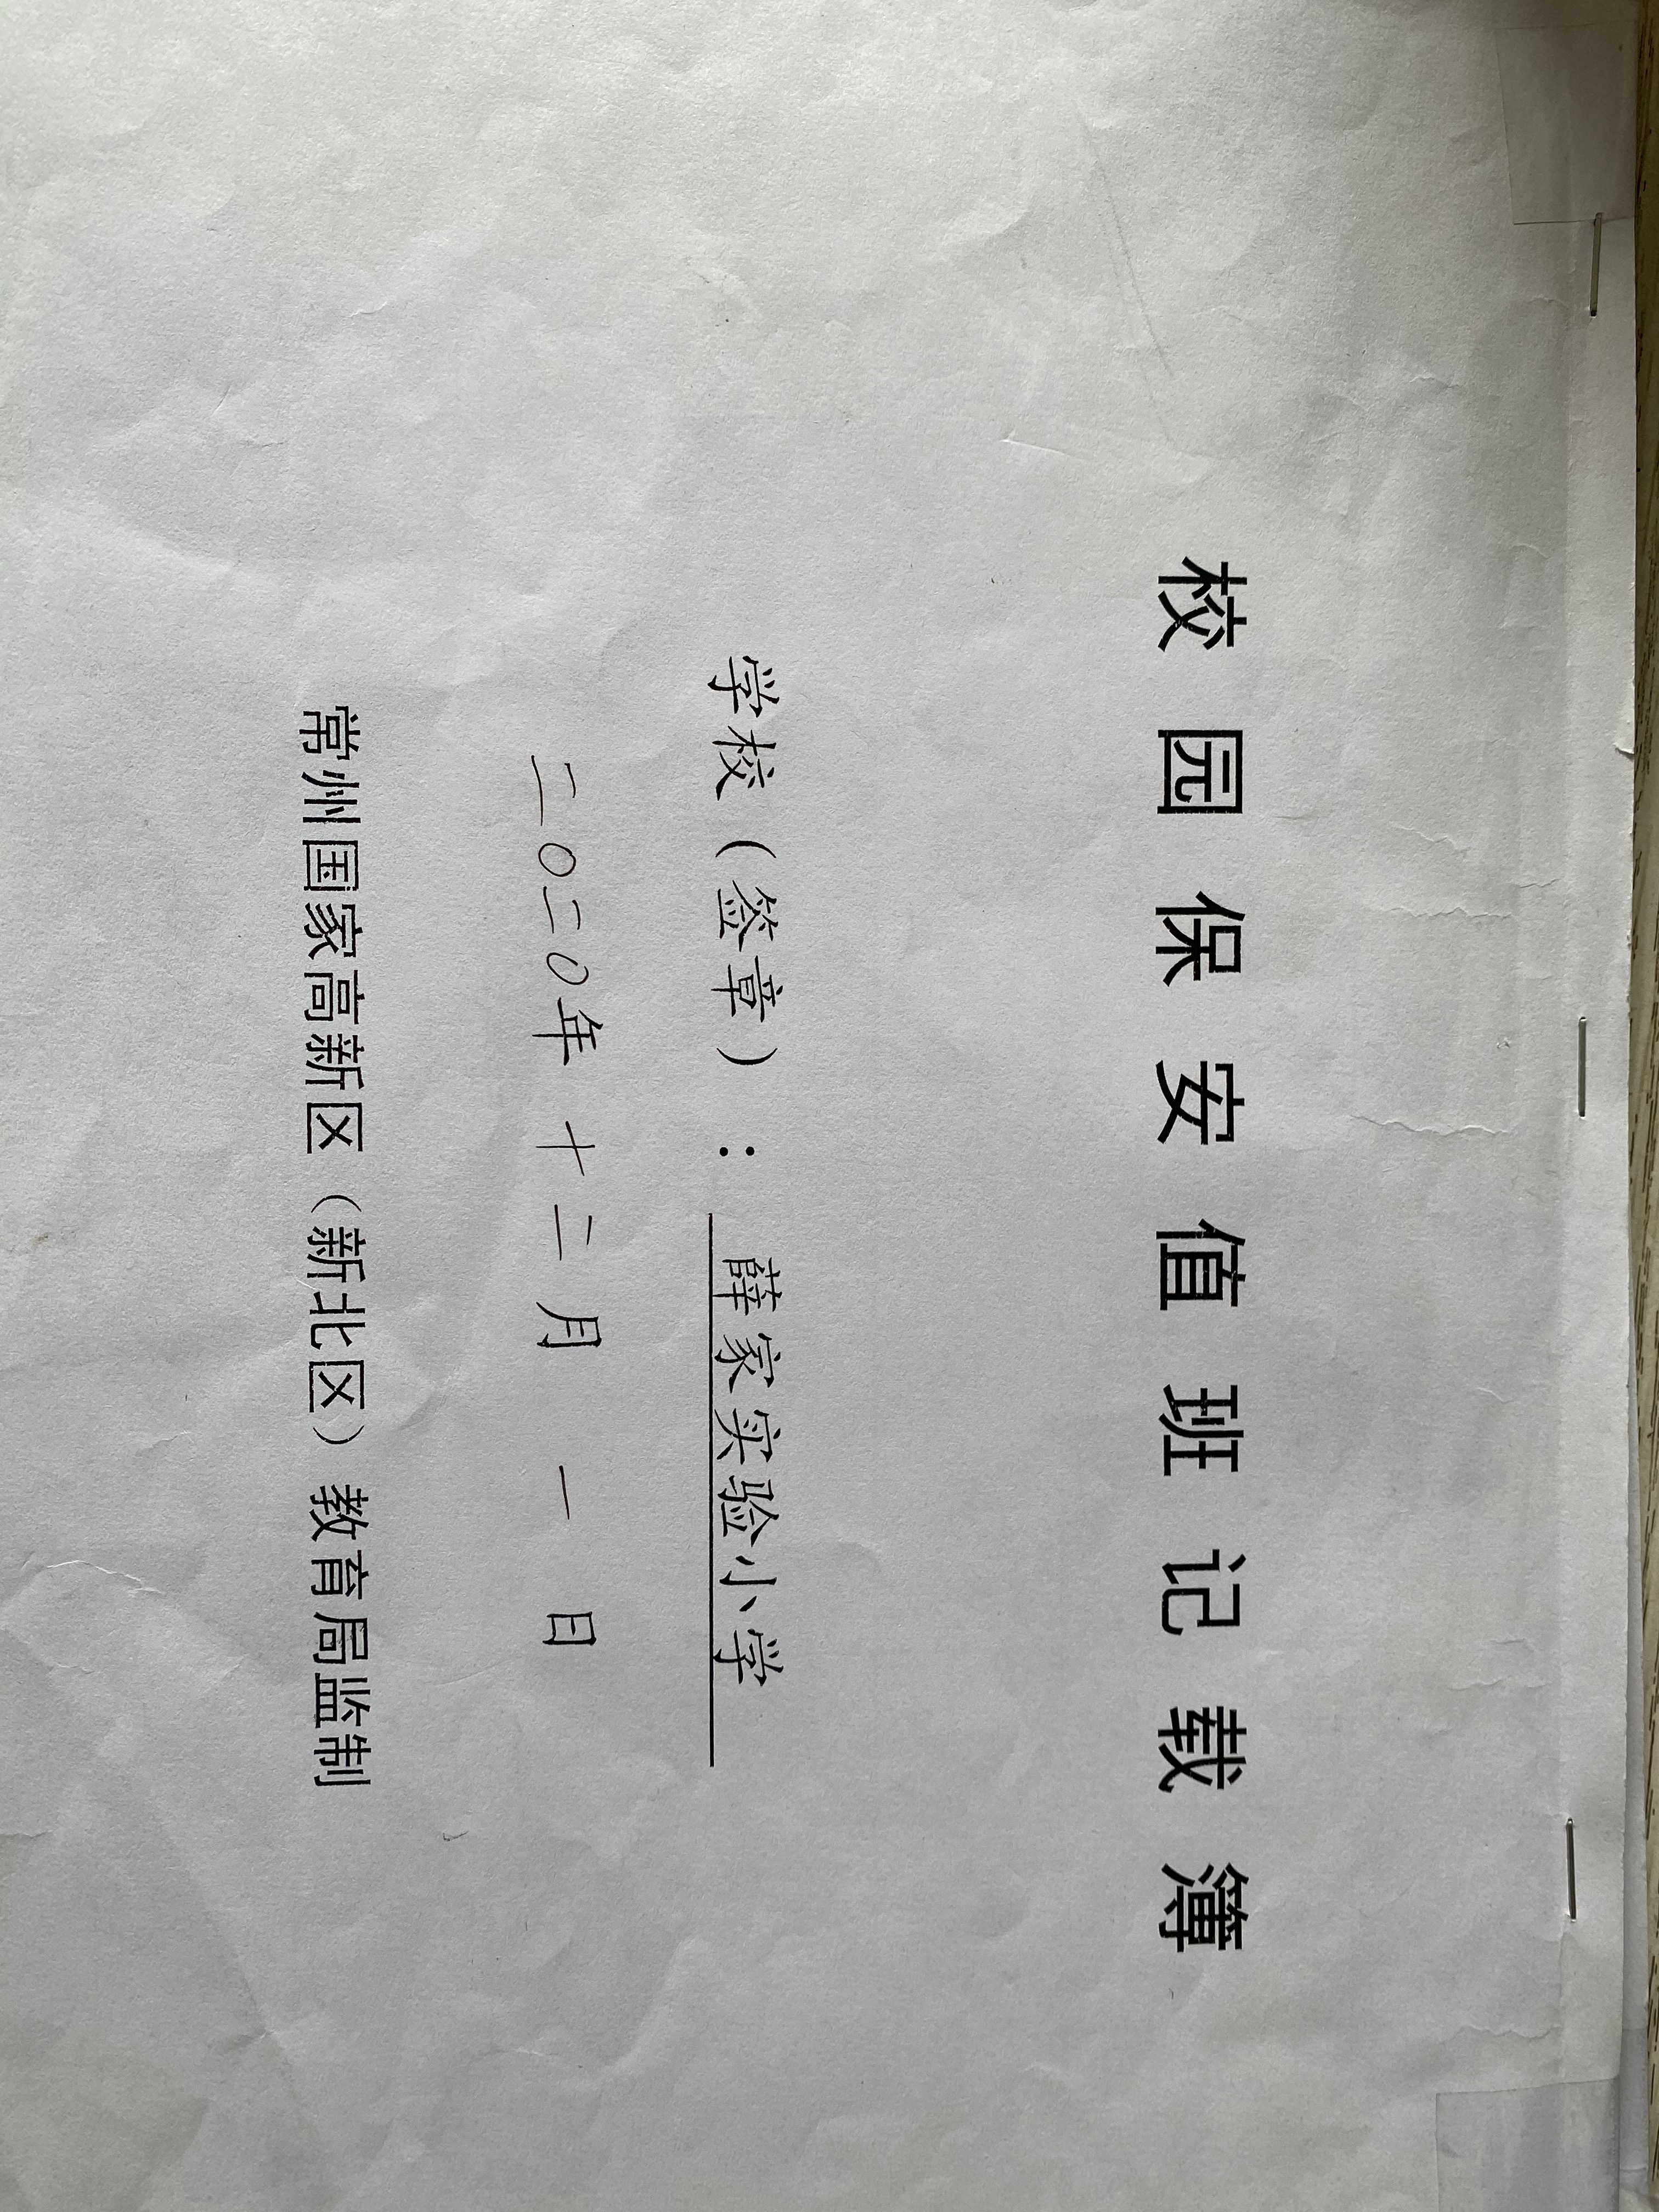 校园保安值班记载簿
学校（签章）：薛家实验小学
二〇二〇年十二月一日
常州国家高新区（新北区）教育局监制